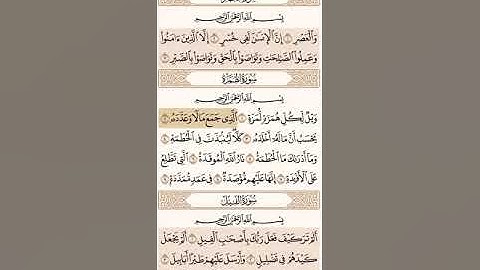 بِسْمِ اللَّهِ الرَّحْمَٰنِ الرَّحِيمِ
وَالْعَصْرِ ١ إِنَّ الْإِنسَٰنَ لَفِي خُسْرٍ ٢ إِلَّا الَّذِينَ ءَامَنُوا
وَعَمِلُوا الصَّٰلِحَٰتِ وَتَوَاصَوْا بِالْحَقِّ وَتَوَاصَوْا بِالصَّبْرِ ٣
سُورَةُ الهُمَزَةِ
بِسْمِ اللَّهِ الرَّحْمَٰنِ الرَّحِيمِ
وَيْلٌ لِّكُلِّ هُمَزَةٍ لُّمَزَةٍ ١ الَّذِي جَمَعَ مَالًا وَعَدَّدَهُ ٢
يَحْسَبُ أَنَّ مَالَهُ أَخْلَدَهُ ٣ كَلَّا لَيُنبَذَنَّ فِي الْحُطَمَةِ ٤
وَمَا أَدْرَىٰكَ مَا الْحُطَمَةُ ٥ نَارُ اللَّهِ الْمُوقَدَةُ ٦ الَّتِي تَطَّلِعُ
عَلَى الْأَفْـِٔدَةِ ٧ إِنَّهَا عَلَيْهِم مُّؤْصَدَةٌ ٨ فِي عَمَدٍ مُّمَدَّدَةٍ ٩
سُورَةُ الفِيلِ
بِسْمِ اللَّهِ الرَّحْمَٰنِ الرَّحِيمِ
أَلَمْ تَرَ كَيْفَ فَعَلَ رَبُّكَ بِأَصْحَٰبِ الْفِيلِ ١ أَلَمْ يَجْعَلْ
كَيْدَهُمْ فِي تَضْلِيلٍ ٢ وَأَرْسَلَ عَلَيْهِمْ طَيْرًا أَبَابِيلَ ٣